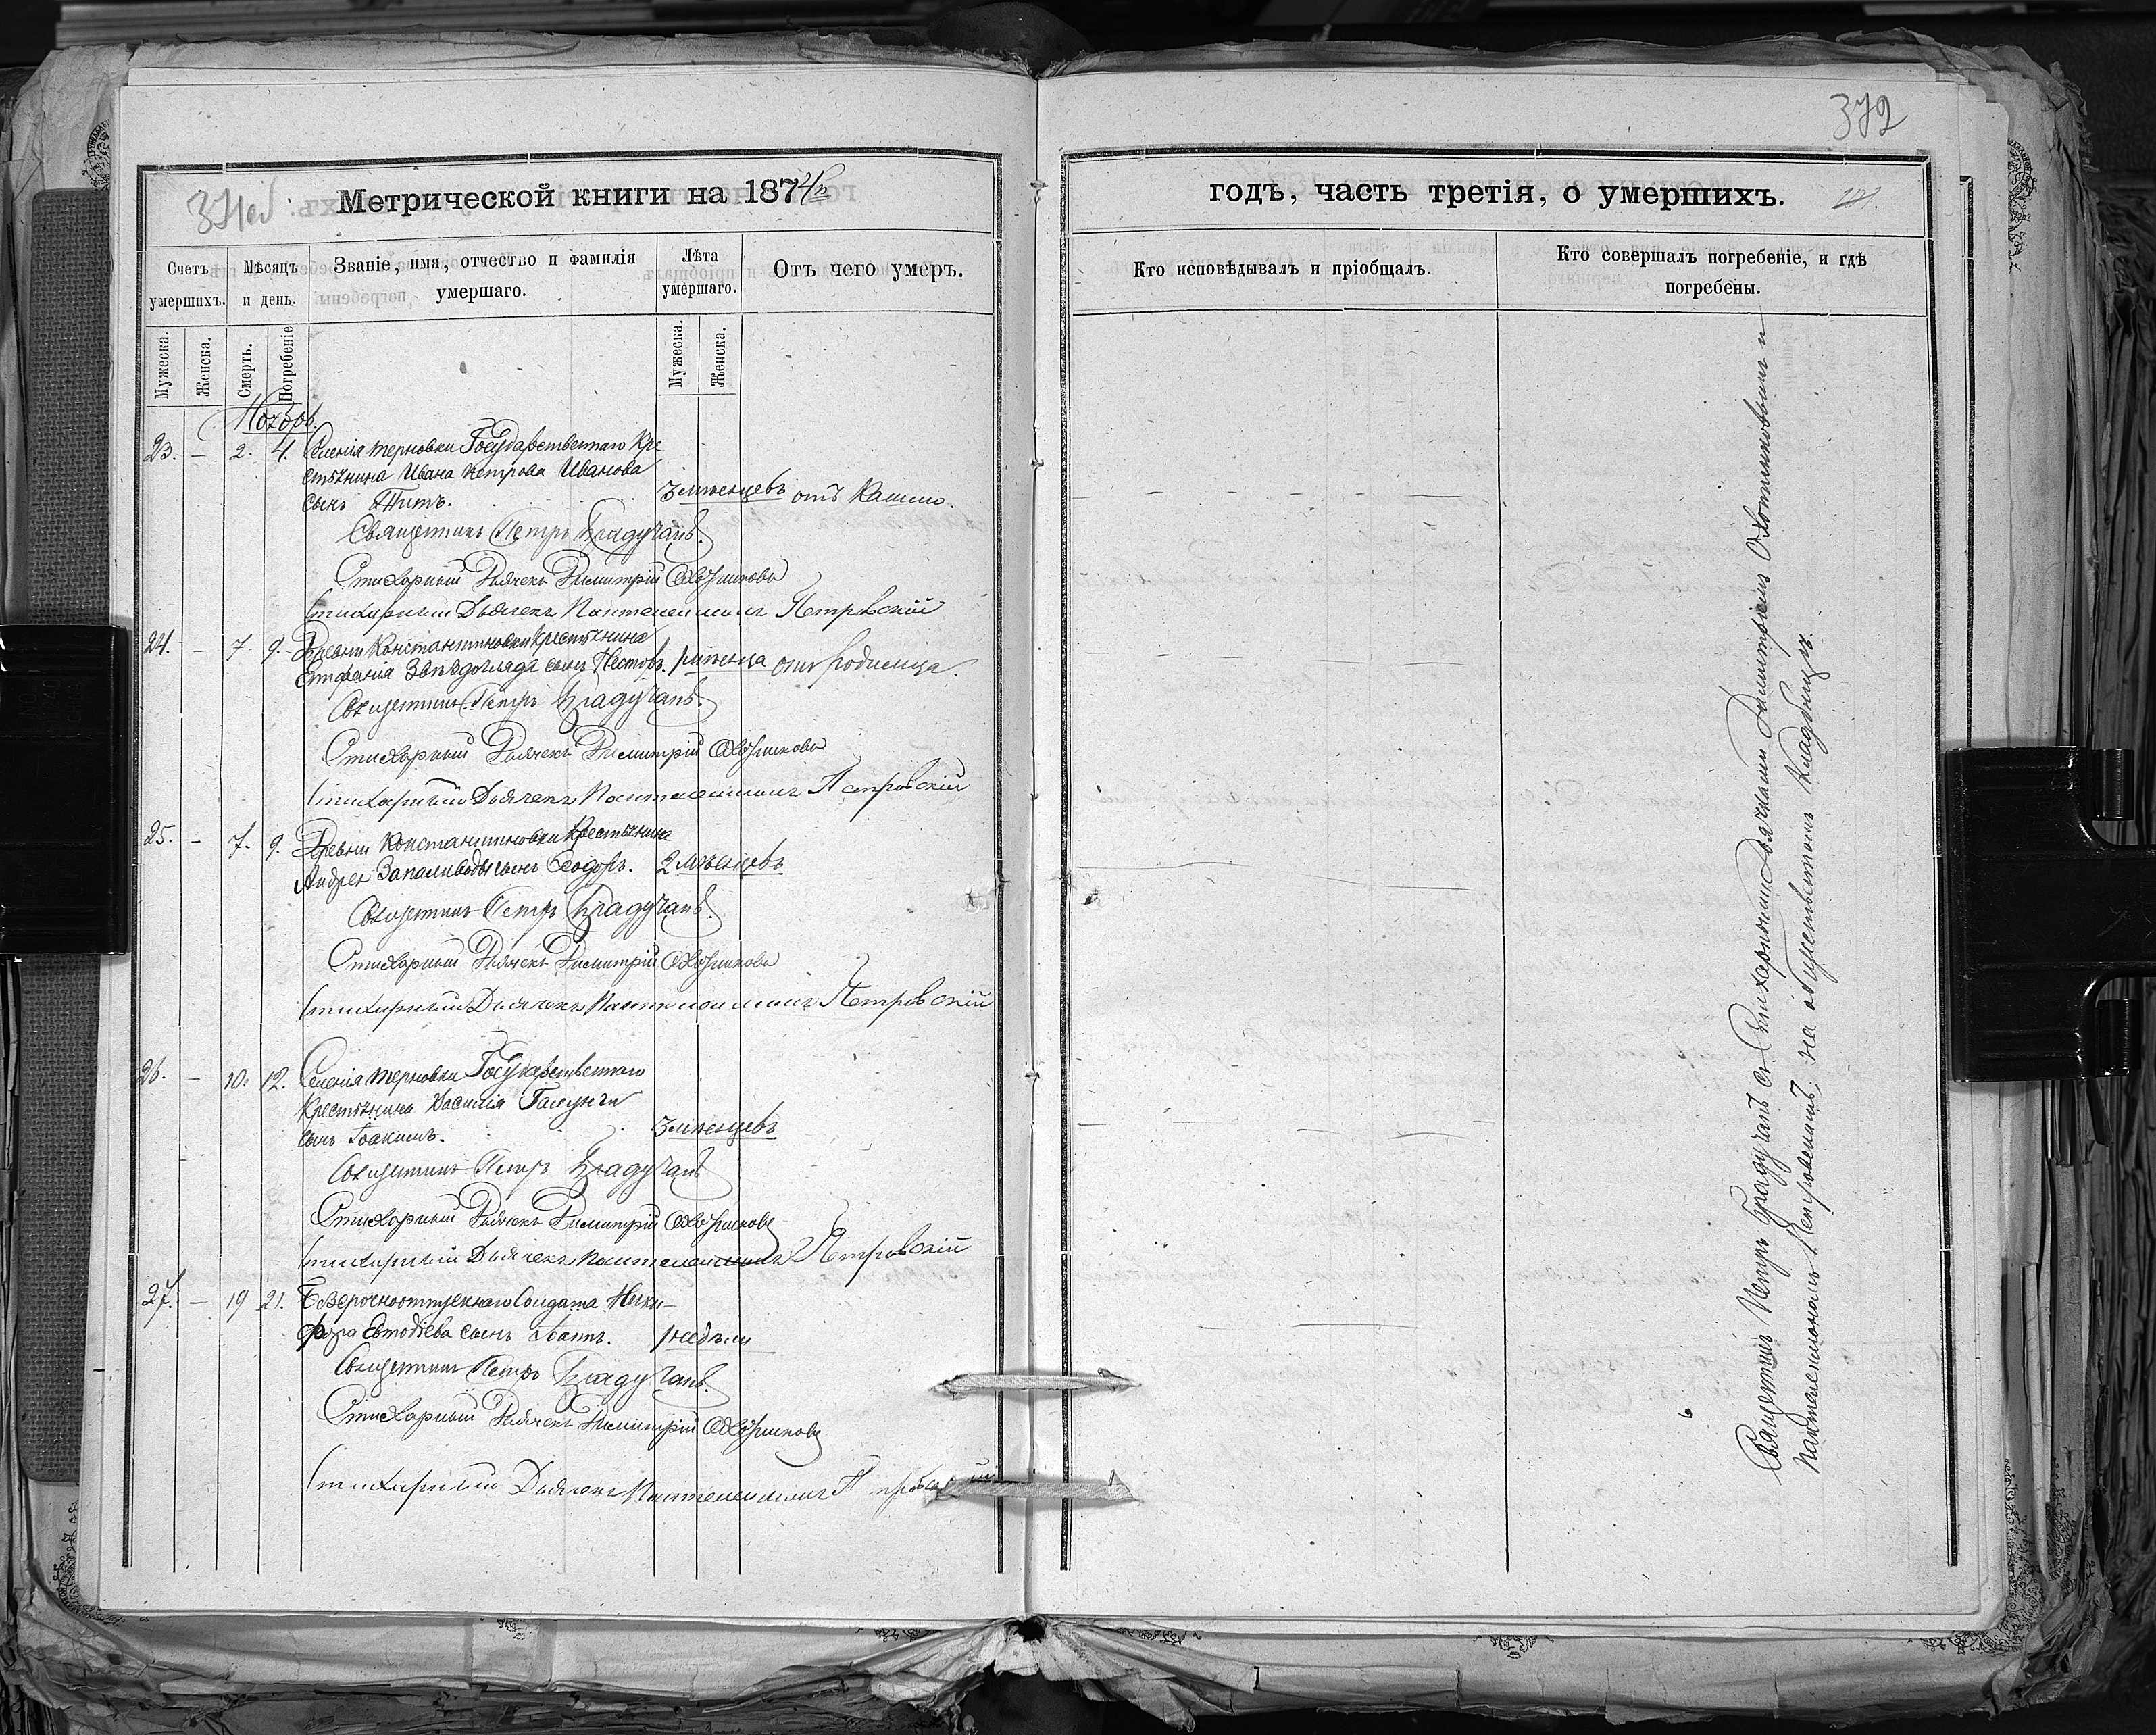 372
Метрической книги на 1874й
Счетъ умершихъ.
Мужеска.
Женска.
Мѣсяцъ и день.
Смерть.
Погребеніе
Званіе, имя, отчество и фамилія умершаго.
Лѣта умершаго.
Мужеска.
Женска.
Отъ чего умеръ.
Ноябрь.
23. — 2. 4. Селенія Терновки Государственнаго Кре
стьянина Ивана Петрова Иванова
сынъ Титъ. 3 мѣсяцевъ отъ Кашлю.
Священникъ Петръ Брадучанъ.
Стихарный Дьячекъ Димитрій Охотниковъ
Стихарный Дьячекъ Пантелеимонъ Петровскій
24. — 7. 9. Деревни Константиновки крестьянина
Стефанія сынъ Несторъ. 1 мѣсяца отъ Родимца.
Священникъ Петръ Брадучанъ.
Стихарный Дьячекъ Димитрій Охотниковъ
Стихарный Дьячекъ Пантелеимонъ Петровскій
25. — 7. 9. Деревни Константиновки Крестьянина
Андрея Запаливоды сынъ Ѳеодоръ. 2 мѣсяцевъ
Священникъ Петръ Брадучанъ.
Стихарный Дьячекъ Димитрій Охотниковъ
Стихарный Дьячекъ Пантелеимонъ Петровскій
26. — 10. 12. Селенія Терновки Государственнаго
Крестьянина Василія
сынъ Іоакимъ. 3 мѣсяцевъ
Священникъ Петръ Брадучанъ
Стихарный Дьячекъ Димитрій Охотниковъ
Стихарный Дьячекъ Пантелеимонъ Петровскій
27. — 19 21. Безсрочноотпускнаго Солдата Ники-
фора Евтодіева сынъ Іоаннъ. 1 недѣли
Священникъ Петръ Брадучанъ.
Стихарный Дьячекъ Димитрій Охотниковъ
Стихарный Дьячекъ Пантелеимонъ Петровскій
годъ, часть третія, о умершихъ.
Кто исповѣдывалъ и пріобщалъ.
Кто совершалъ погребеніе, и гдѣ
погребены.
Священникъ Петръ Брадучанъ съ Стихарными Дьячками Димитріемъ Охотниковымъ и
Пантелеимономъ Петровскимъ, на общественномъ Кладбищѣ.